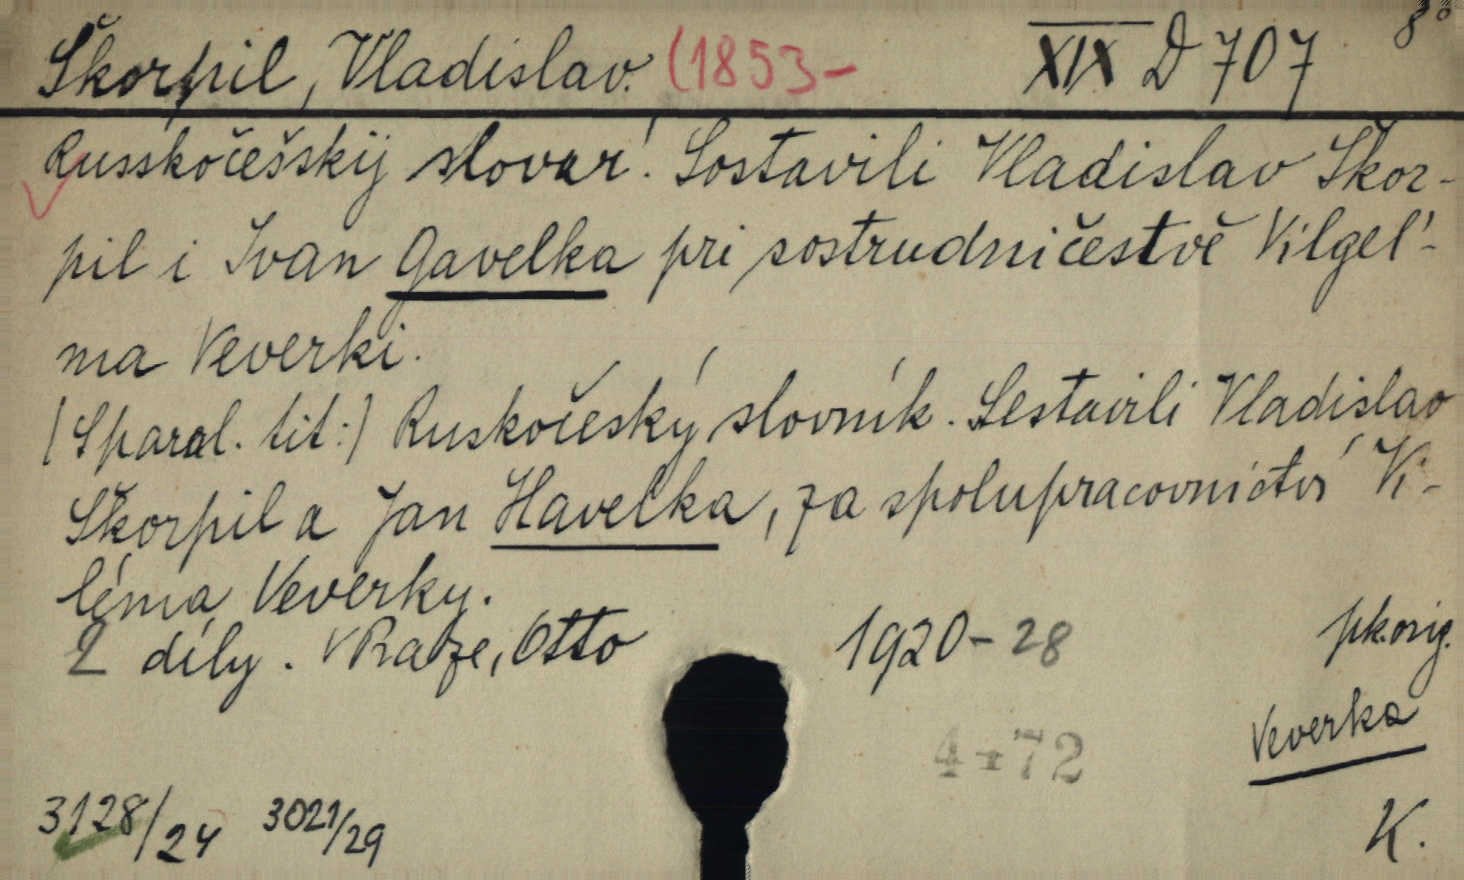 8°
Škorpil, Vladislav. (1853- XIX D 707
Russkočešskij slovar'. Sostavili Vladislav Škor-
pil i Ivan Gavelka pri sostrudničestvě Vilgel'-
ma Veverki.
(S paral. tit:) Ruskočeský slovník. Sestavili Vladislav
Škorpil a Jan Havelka, za spolupracovnictví Vi-
léma Veverky.
2 díly. V Praze, Otto 1920-28 pk.orig.
Veverka
4-72
3128/24 3021/29
K.